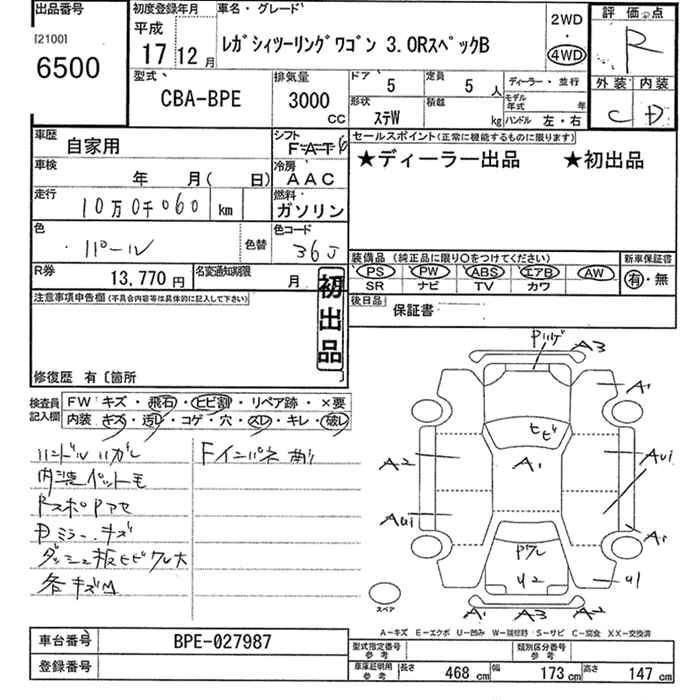 出品番号 初度登録年月 車名・グレード 評価点
[2100] 平成 2WD R
6500 17 12月 レガシィツーリングワゴン 3.0RスペックB ・ 4WD
型式 排気量 ドア 定員 ディーラー・並行 外装 内装
CBA-BPE 3000 CC 5 5人 モデル年式 年 C D
形状 積載 ハンドル 左・右
ステW kg
車歴 自家用 シフト FAT6 セールスポイント(正常に機能するものに限ります)
車検 年 月( 日) 冷房 AAC ★ディーラー出品 ★初出品
走行 10万0千060 km 燃料 ガソリン
色 パール 色替 色コード 36J
装備品 (純正品に限り〇をつけてください) 新車保証書
R券 13,770円 名変通知期限 月 PS PW ABS エアB AW 有・無
SR ナビ TV カワ
注意事項申告欄(不具合内容等は具体的に記入して下さい) 初出品 後日品 保証書
修復歴 有〔箇所 〕
検査員記入欄 FW キズ・飛石・ヒビ割・リペア跡・×要
内装 キズ・汚レ・コゲ・穴・スレ・キレ・破レ
ハンドルハガレ Fインパネ削
内装ペットモ
RスポPアセ
Dミラーキズ
ダッシュ板ヒビワレ大
各キズM
Pハゲ A3
A1
ヒビ
A2 A1 AU1
AU1 A1
Pワレ
U2 U1
A1 A3 A2
スペア
A-キズ E-エクボ U-凹み W-補修跡 S-サビ C-腐食 XX-交換済
車台番号 BPE-027987 型式指定番号 参考 類別区分番号 参考
登録番号 車庫証明用 参考 長さ 468cm 幅 173cm 高さ 147cm